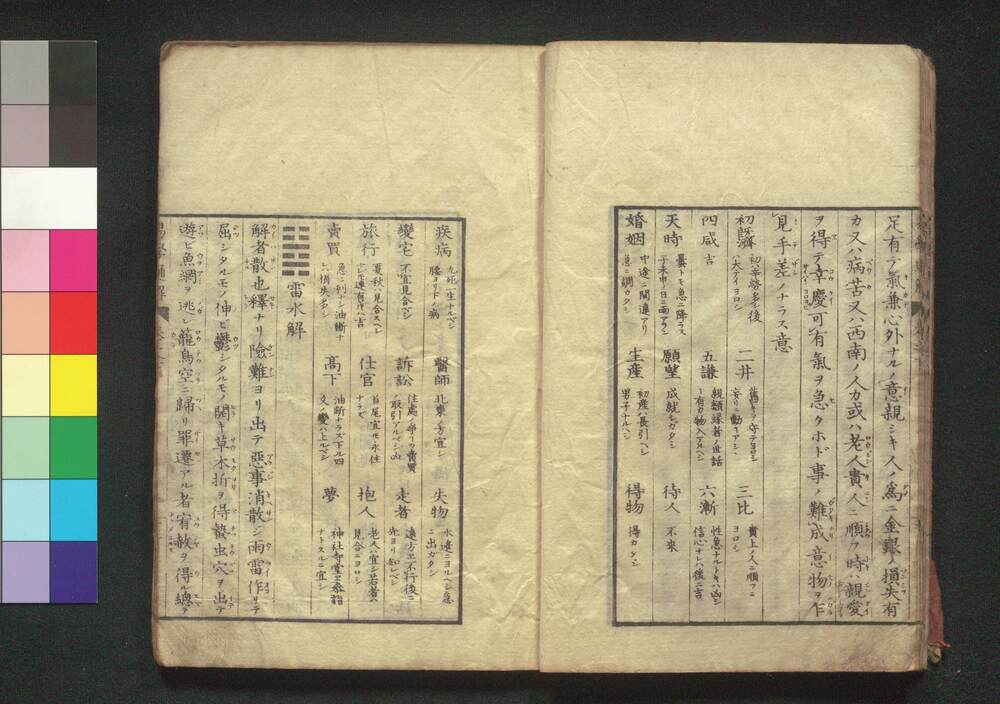 足有テ氣兼心外ナルノ意親シキ人ノ爲ニ金銀ノ損失有
カ又ハ病苦又ハ西南ノ人カ或ハ老人貴人ニ順フ時ハ親愛
ヲ得テ幸慶可有氣ヲ急クホド事ノ難成意物ヲ乍
見手差ノナラス意
初蹇 初辛勞多後ハ大テイヨロシ
二井 舊キヲ守テヨロシ妄リニ動ベアシヽ
三比 貴上ノ人ニ順フニヨロシ
四咸 吉
五謙 親類縁者ノ世話ニ有カ物入アルヘシ
六漸 性急ナルトキハ凶シ信心ナレハ後ニ吉
天時 曇トモ急ニ降ラス子未申ノ日ニ雨アラン
願望 成就シガタシ
待人 不來
婚姻 中途ニ間違アリ急ニ調カタシ
生産 初産ハ長引ヘシ男子ナルヘシ
得物 得カタシ
疾病 九死一生ナルベシ腰ヨリ下ノ病
醫師 北東ノ方宜シ
失物 水邊ニヨルベシ急ニ出カタシ
變宅 不宜見合ベシ
訴訟 住處ノ爭ヒカ賣買ノ取引アルベシ凶
走者 遠方エ不行後ニ先ヨリ知レベシ
旅行 夏秋ハ見合スヘシ少シモ連有ルハ吉
仕官 首尾宜モ永住ナラズ
抱人 老人ハ宜シ若者ハ見合ニヨロシ
賣買 急ニ利ナシ油斷ナレハ損失多シ
高下 油斷ナラズ下ル四爻ノ變ハ上ルベシ
夢 神社寺堂エ參詣ナトスルニ宜シ
雷水解
解者散也釋ナリ險難ヨリ出テ惡事消散シ雨雷作リテ
屈シタルモノ伸ビ鬱シタルモノ開キ草木折ヲ得蟄虫穴ヲ出テ
遊ビ魚網ヲ逃レ籠鳥空ニ歸リ罪遷アル者宥赦ヲ得ル總テ